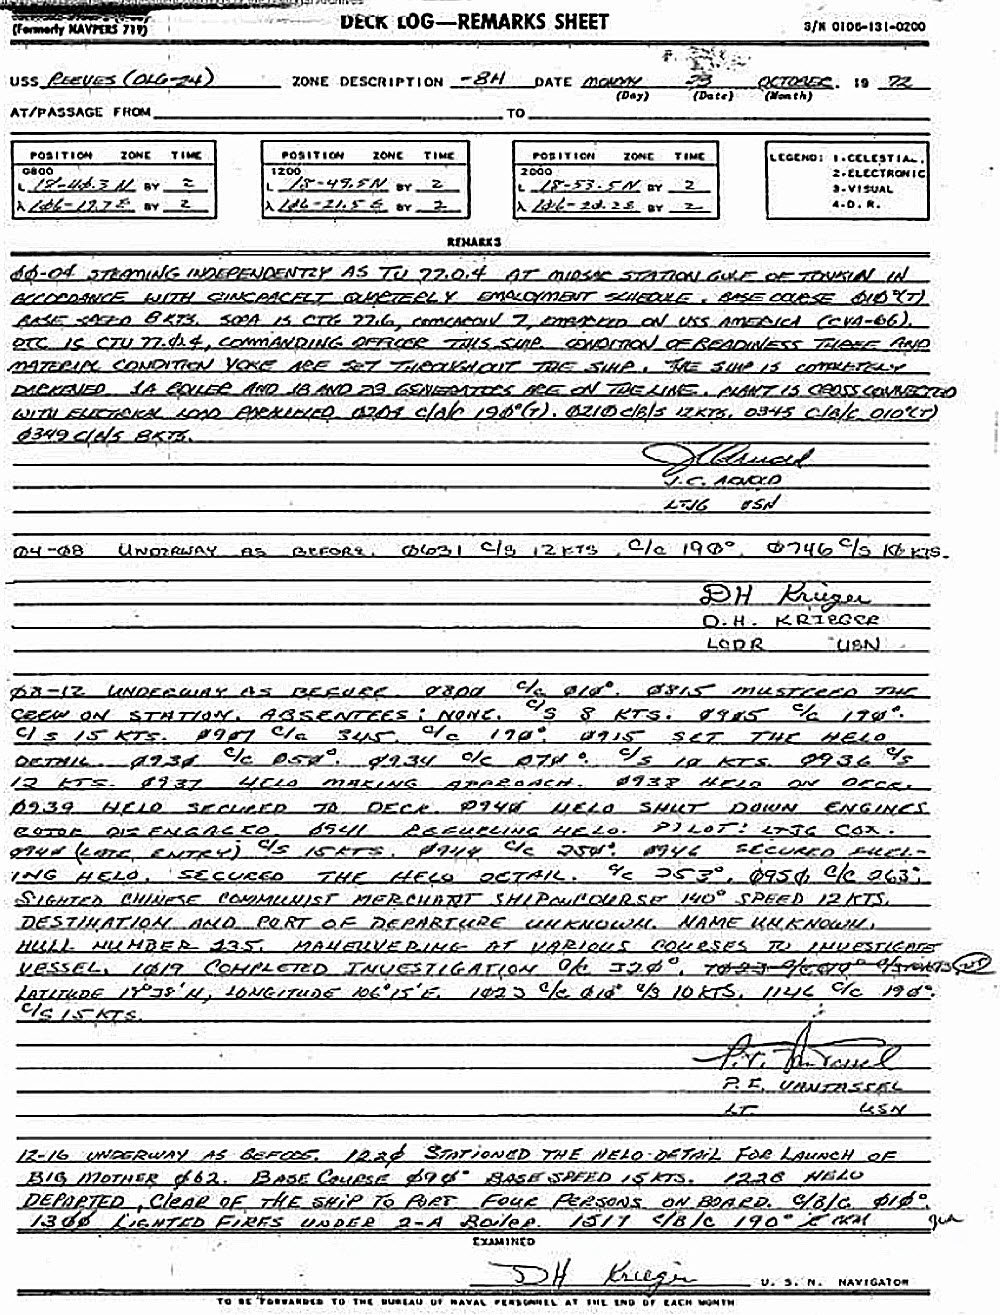 (Formerly NAVPERS 719)
DECK LOG—REMARKS SHEET
S/N 0106-131-0200
USS REEVES (DLG-24) ZONE DESCRIPTION -8H DATE MONDAY 23 OCTOBER 19 72
(Day) (Date) (Month)
AT/PASSAGE FROM TO
POSITION ZONE TIME
0800
L 18-46.3 N BY 2
λ 106-17.7E BY 2
POSITION ZONE TIME
1200
L 18-49.5N BY 2
λ 106-21.5 E BY 2
POSITION ZONE TIME
2000
L 18-53.5N BY 2
λ 106-20.2E BY 2
LEGEND: 1-CELESTIAL
2-ELECTRONIC
3-VISUAL
4-D. R.
REMARKS
00-04 STEAMING INDEPENDENTLY AS TU 77.0.4 AT MIDSAR STATION GULF OF TONKIN IN
ACCORDANCE WITH CINCPACFLT QUARTERLY EMPLOYMENT SCHEDULE. BASE COURSE 010°(T)
BASE SPEED 8 KTS. SOPA IS CTG 77.6, COMCARDIV 7, EMBARKED ON USS AMERICA (CVA-66).
OTC IS CTU 77.0.4, COMMANDING OFFICER THIS SHIP. CONDITION OF READINESS THREE AND
MATERIAL CONDITION YOKE ARE SET THROUGHOUT THE SHIP. THE SHIP IS COMPLETELY
DARKENED. 1A BOILER AND 1B AND 2B GENERATORS ARE ON THE LINE. PLANT IS CROSSCONNECTED
WITH ELECTRICAL LOAD PARALLELED. 0209 C/B/C 190°(T). 0210 C/B/S 12KTS. 0345 C/B/C 010°(T)
0349 C/B/S 8KTS.
J.C. ARNOLD
LTJG USN
04-08 UNDERWAY AS BEFORE. 0631 C/S 12 KTS. C/C 190°. 0746 C/S 10 KTS.
DH Krieger
D.H. KRIEGER
LCDR USN
08-12 UNDERWAY AS BEFORE. 0800 C/C 010°. 0815 MUSTERED THE
CREW ON STATION. ABSENTEES: NONE. C/S 8 KTS. 0905 C/C 190°.
C/S 15 KTS. 0907 C/C 345. C/C 190°. 0915 SET THE HELO
DETAIL. 0930 C/C 050°. 0934 C/C 070°. C/S 10 KTS. 0936 C/S
12 KTS. 0937 HELO MAKING APPROACH. 0938 HELO ON DECK.
0939 HELO SECURED TO DECK. 0940 HELO SHUT DOWN ENGINES
ROTOR DISENGAGED. 0941 REFUELING HELO. PILOT: LTJG COX.
0940 (LATE ENTRY) C/S 15KTS. 0944 C/C 250°. 0946 SECURED FUEL-
ING HELO. SECURED THE HELO DETAIL. C/C 253°. 0950 C/C 263°.
SIGHTED CHINESE COMMUNIST MERCHANT SHIP ON COURSE 140° SPEED 12KTS.
DESTINATION AND PORT OF DEPARTURE UNKNOWN. NAME UNKNOWN.
HULL NUMBER 235. MANEUVERING AT VARIOUS COURSES TO INVESTIGATE
VESSEL. 1019 COMPLETED INVESTIGATION C/C 320°. 1023 C/C 010° C/S 10KTS
LATITUDE 19°38'N, LONGITUDE 106°15'E. 1023 C/C 010° C/S 10 KTS. 1146 C/C 190°.
C/S 15 KTS.
P.E. VANTASSEL
LT USN
12-16 UNDERWAY AS BEFORE. 1220 STATIONED THE HELO DETAIL FOR LAUNCH OF
BIG MOTHER 062. BASE COURSE 090° BASE SPEED 15 KTS. 1228 HELO
DEPARTED, CLEAR OF THE SHIP TO PORT FOUR PERSONS ON BOARD. C/B/C 010°.
1300 LIGHTED FIRES UNDER 2-A Boiler. 1517 C/B/C 190°
EXAMINED
DH Krieger U. S. N. NAVIGATOR
TO BE FORWARDED TO THE BUREAU OF NAVAL PERSONNEL AT THE END OF EACH MONTH